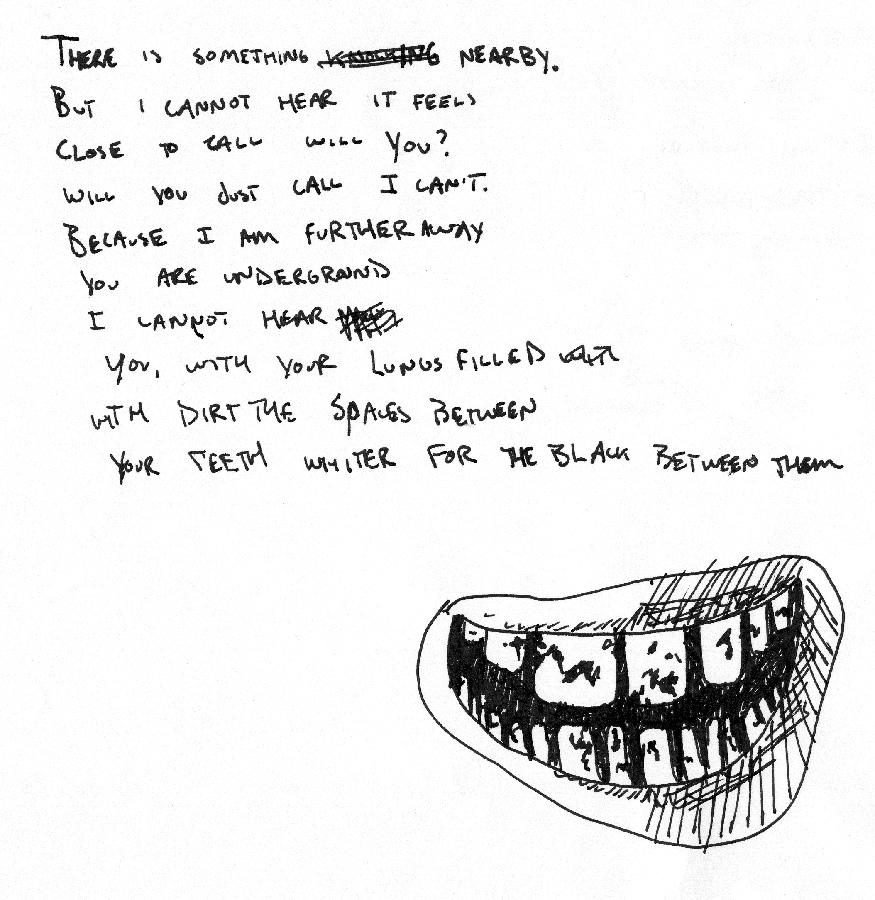 THERE IS SOMETHING KNOCKING NEARBY.
BUT I CANNOT HEAR IT FEELS
CLOSE TO CALL WILL YOU?
WILL YOU JUST CALL I CAN'T.
BECAUSE I AM FURTHER AWAY
YOU ARE UNDERGROUND
I CANNOT HEAR
YOU, WITH YOUR LUNGS FILLED
WITH DIRT THE SPACES BETWEEN
YOUR TEETH WHITER FOR THE BLACK BETWEEN THEM